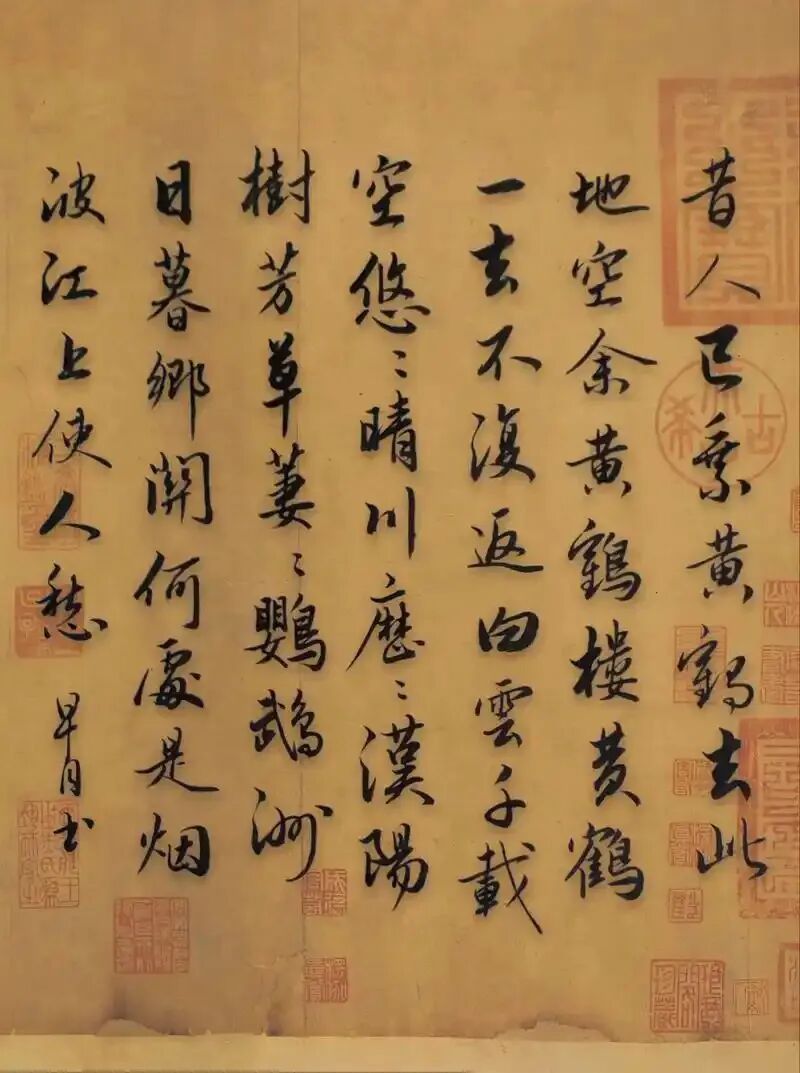 昔人已乘黄鶴去此
地空余黄鶴樓黄鶴
一去不復返白雲千載
空悠〻晴川歷〻漢陽
樹芳草萋〻鸚鵡洲
日暮鄉關何處是烟
波江上使人愁
早月书